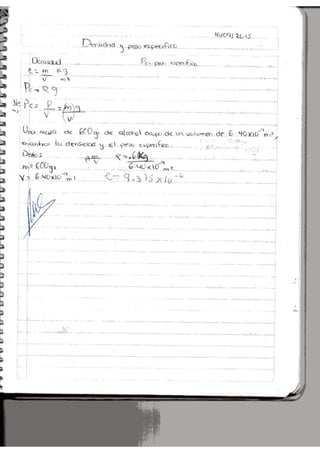 10/09/2015
Densidad y peso especifico
Densidad Pe= peso especifico
ρ = m/v Kg/m³
Pe = ρg
Pe = P/V = mg/V
Una masa de 600gs de alcohol ocupa de un volumen de 6.40x10⁻⁴ m³,
encontrar la densidad y el peso especifico.
Datos: ρ = .6Kg
m= 600gs 6.40x10⁻⁴ m³
V= 6.40x10⁻⁴m³ ρ= 9.375x10⁻⁶